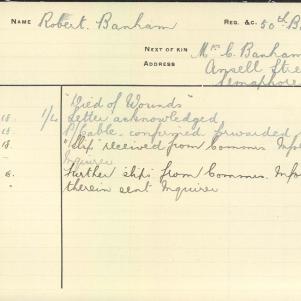 NAME Robert. Banham. REG. &C. 50th B
NEXT OF KIN Mrs C. Banham
ADDRESS Ansell Stre
Semaphore
"Died of Wounds"
18. 1/4 Letter acknowledged
Cable confirmed forwarded
18. "slip" received from Commes.
Inquirer
8. further slip from Commes.
therein sent Inquirer